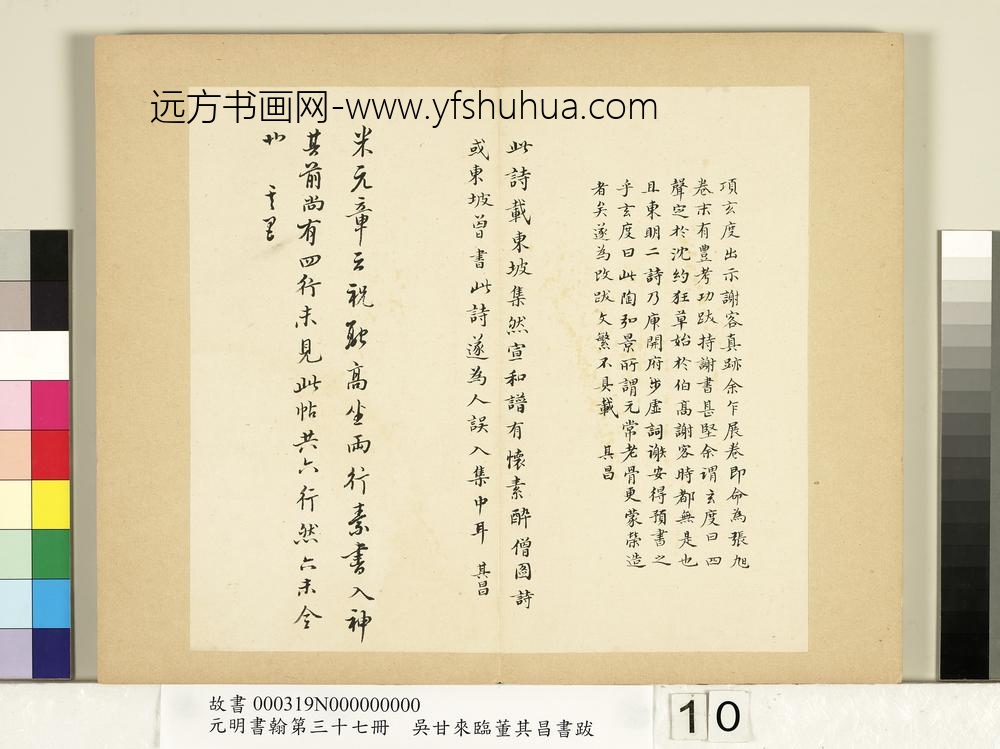 远方书画网-www.yfshuhua.com
項玄度出示謝客真跡余乍展卷即命為張旭
卷末有豐考功跋持謝書甚堅余謂玄度曰四
聲定於沈約狂草始於伯高謝客時都無是也
且東明二詩乃庾開府步虛詞謝安得預書之
乎玄度曰此陶弘景所謂元常老骨更蒙榮造
者矣遂為改跋文繁不具載 其昌
此詩載東坡集然宣和譜有懷素酔僧圖詩
或東坡曾書此詩遂為人誤入集中耳 其昌
米元章云祝融高坐兩行素書入神
其前尚有四行未見此帖共六行然六未全
故書 000319N000000000
元明書翰第三十七冊 吳甘來臨董其昌書跋
10